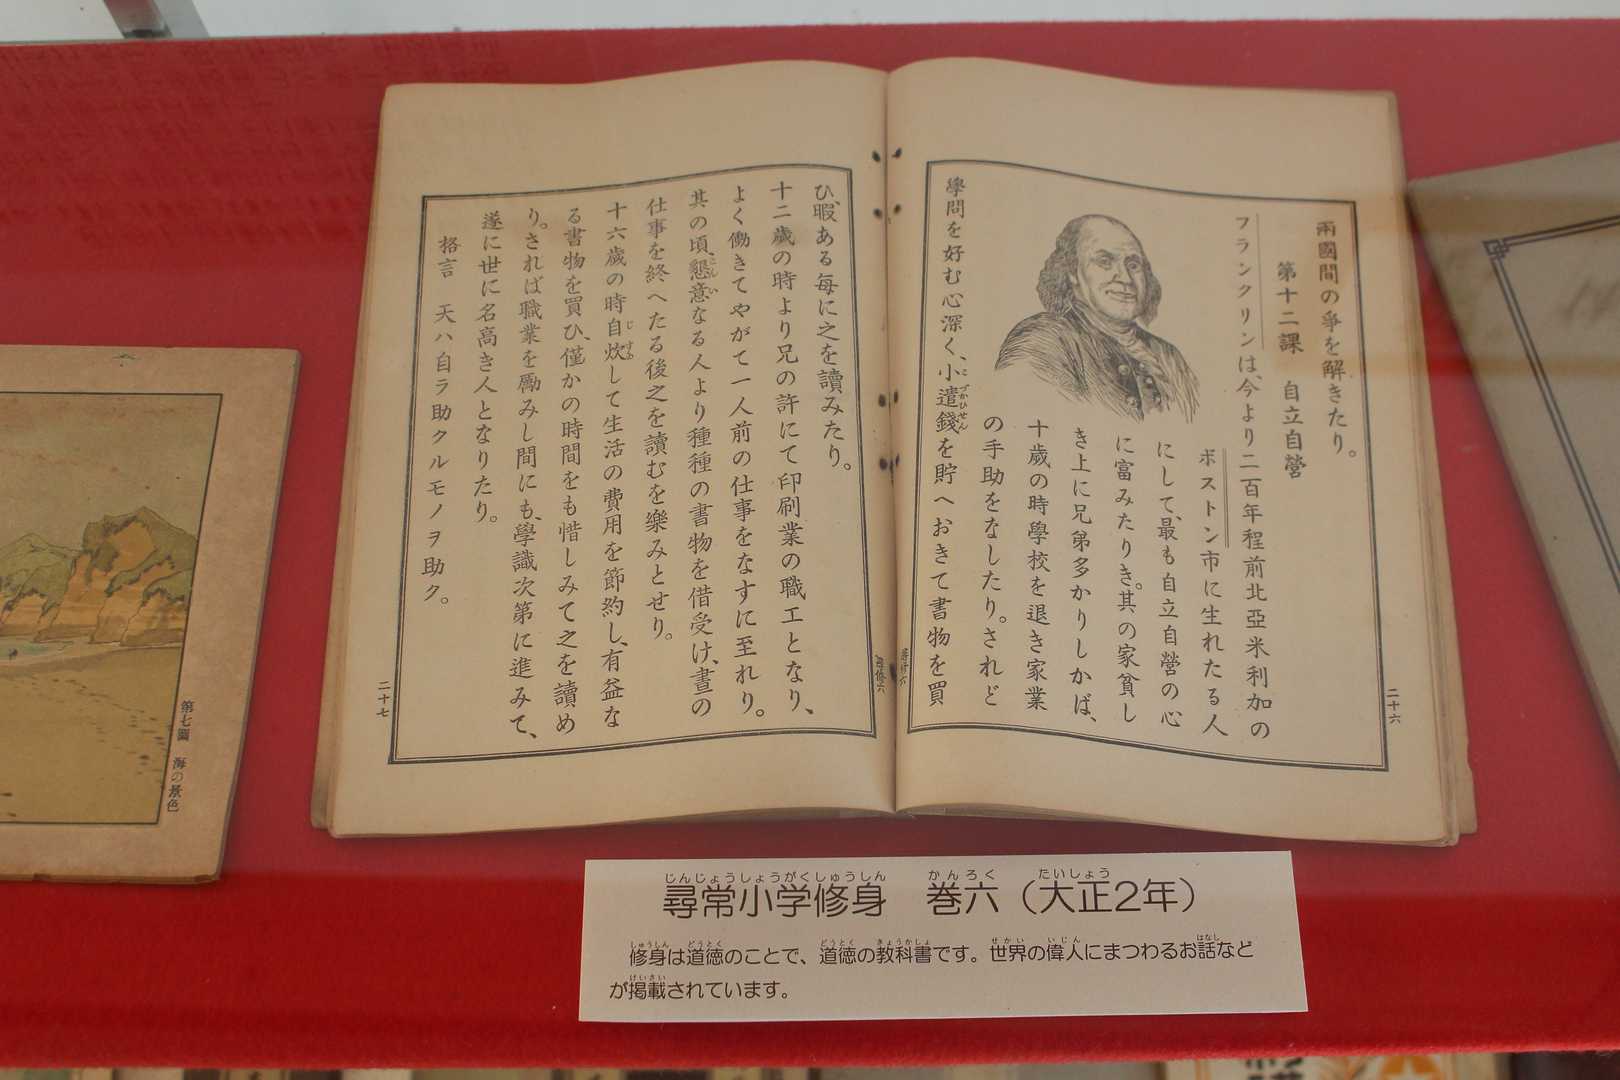 兩國間の爭を解きたり。
第十二課　自立自營
フランクリンは、今より二百年程前北亞米利加の
ボストン市に生れたる人
にして、最も自立自營の心
に富みたりき。其の家貧し
き上に兄弟多かりしかば、
十歳の時學校を退き家業
の手助をなしたり。されど
學問を好む心深く、小遣錢を貯へおきて書物を買
こづかひせん
二十六
ひ、暇ある毎に之を讀みたり。
十二歳の時より兄の許にて印刷業の職工となり、
よく働きてやがて一人前の仕事をなすに至れり。
其の頃、懇意なる人より種種の書物を借受け、晝の
こんい
仕事を終へたる後之を讀むを樂みとせり。
十六歳の時自炊して生活の費用を節約し、有益な
じすゐ
る書物を買ひ、僅かの時間をも惜しみて之を讀め
り。されば職業を勵みし間にも、學識次第に進みて、
遂に世に名高き人となりたり。
格言　天ハ自ラ助クルモノヲ助ク。
二十七
第七圖　海の景色
じんじょうしょうがくしゅうしん　かんろく　たいしょう
尋常小学修身　巻六（大正2年）
しゅうしん　どうとく　どうとく　きょうかしょ　せかい　いじん　はなし
修身は道徳のことで、道徳の教科書です。世界の偉人にまつわるお話など
けいさい
が掲載されています。